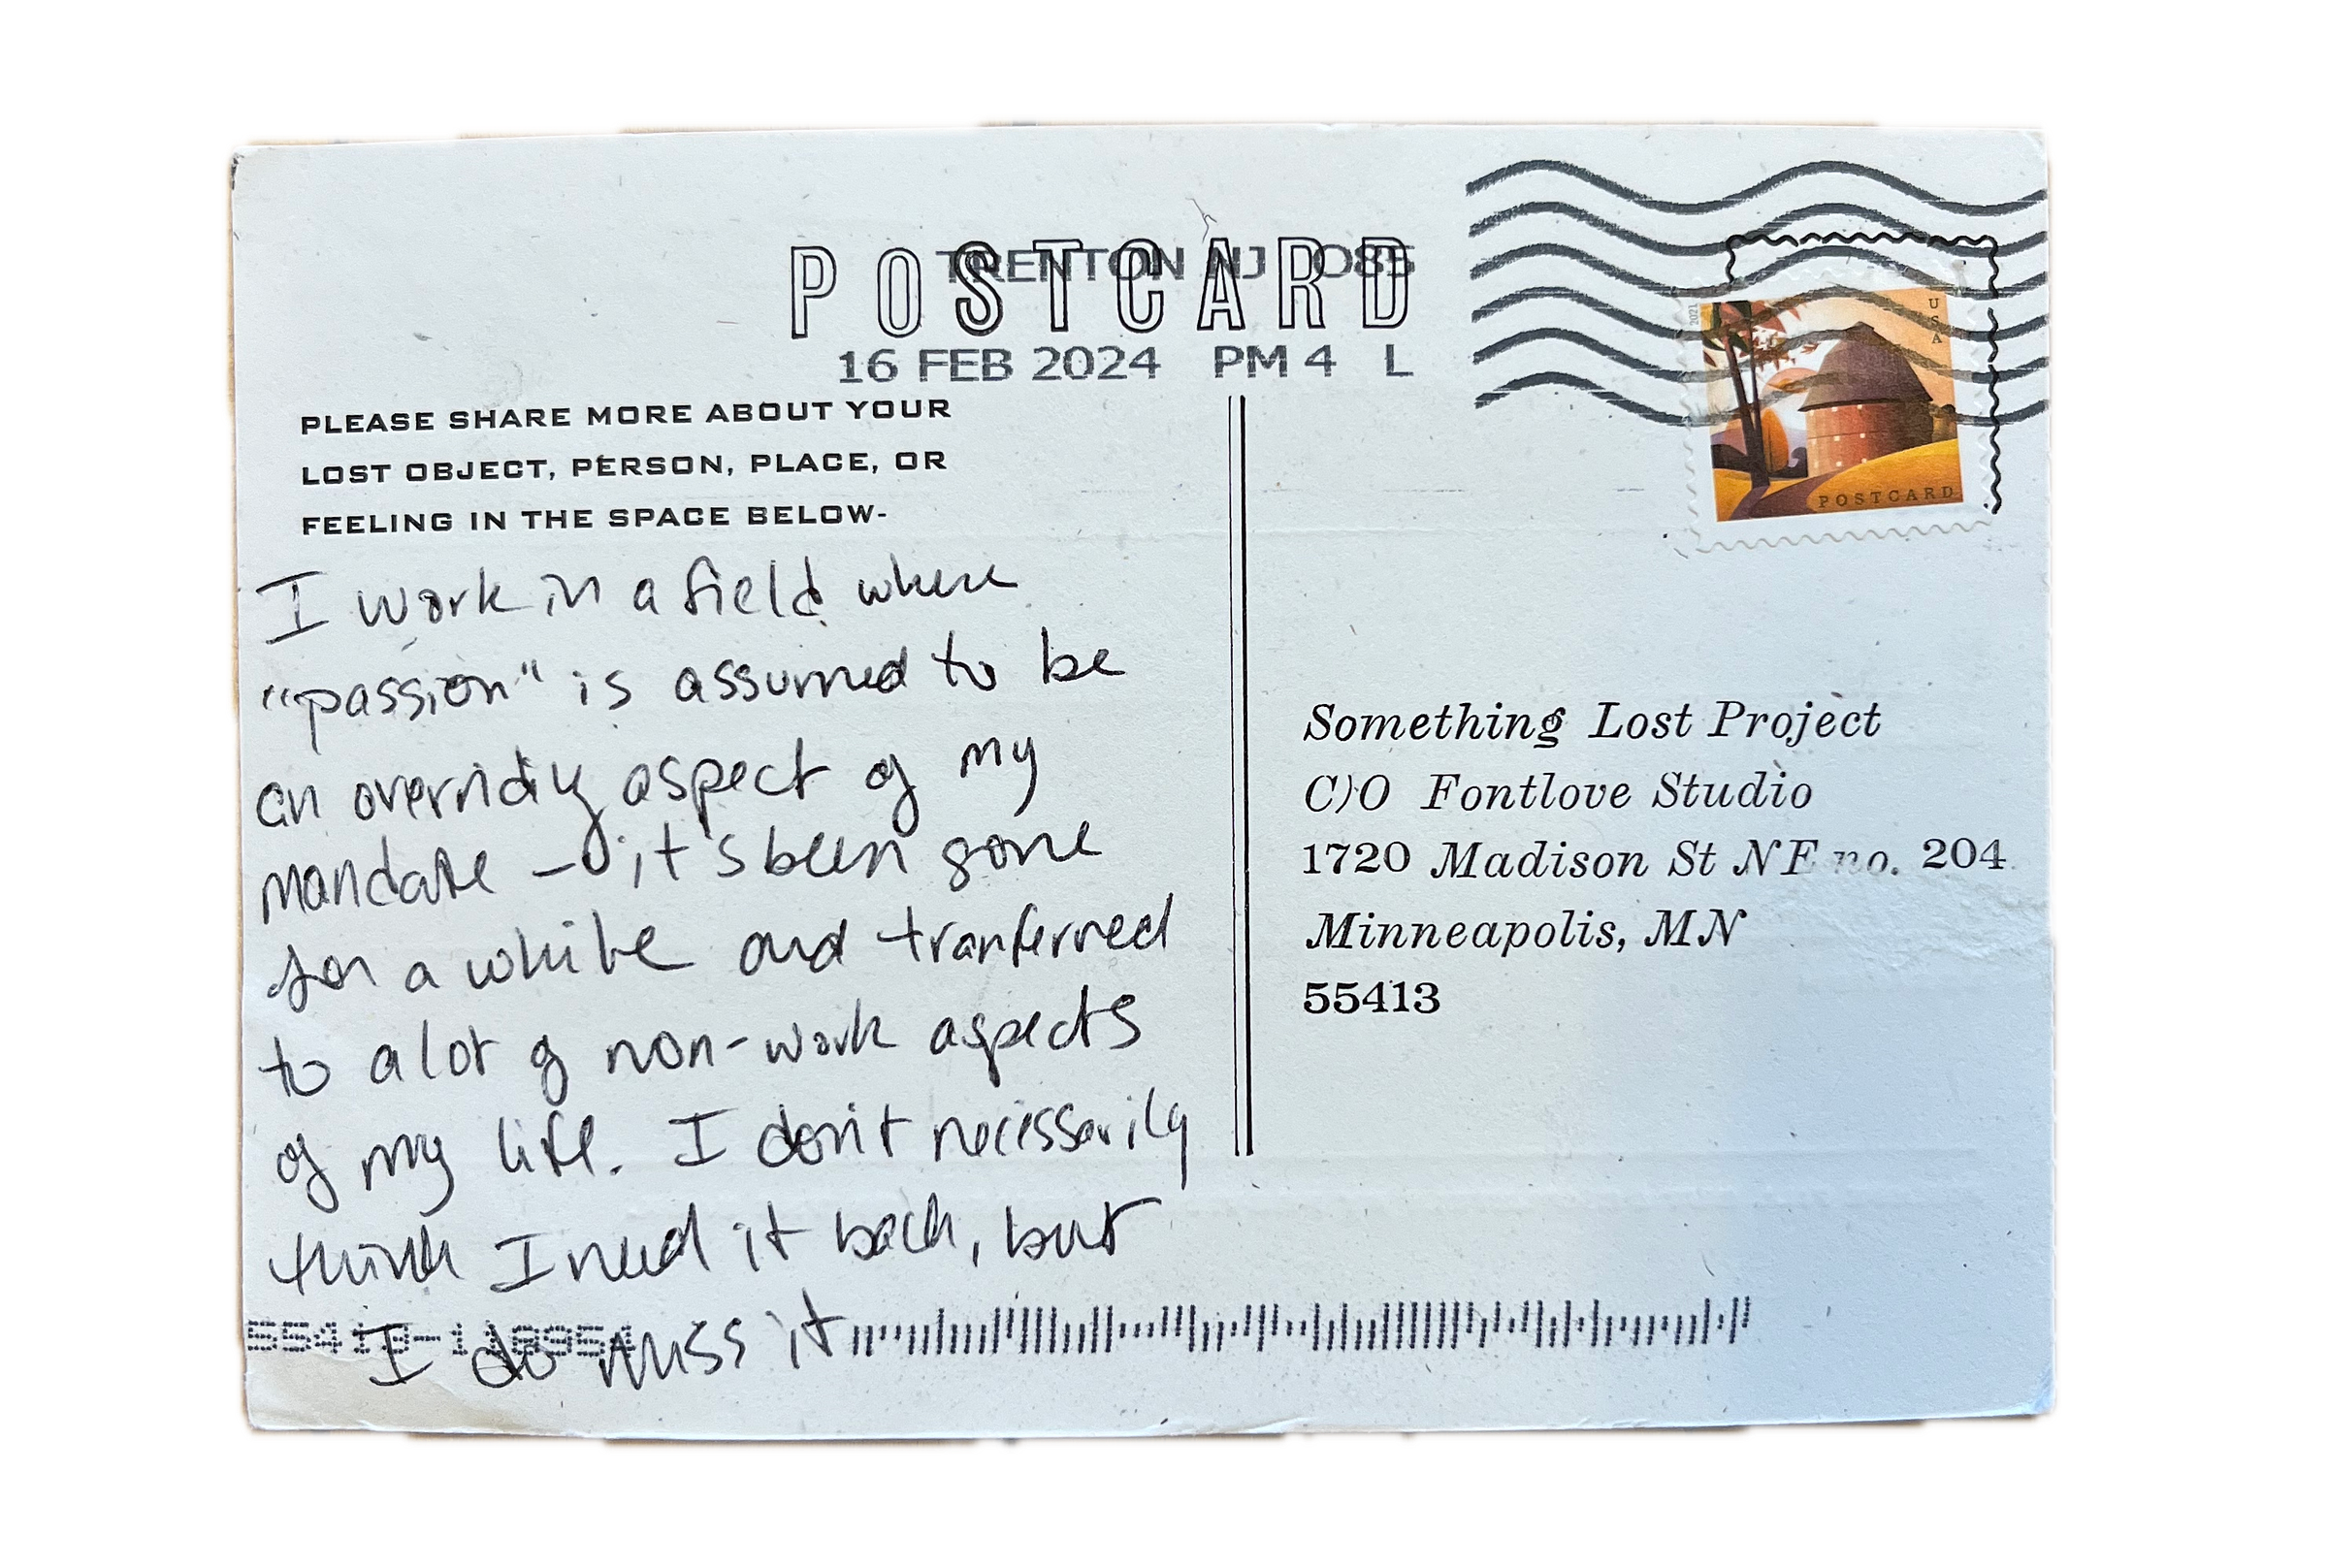 POSTCARD
TRENTON NJ 085
16 FEB 2024 PM 4 L
2021
USA
POSTCARD
PLEASE SHARE MORE ABOUT YOUR
LOST OBJECT, PERSON, PLACE, OR
FEELING IN THE SPACE BELOW-
I work in a field where
"passion" is assumed to be
an overriding aspect of my
mandate – it's been gone
for a while and tranferred
to a lot of non-work aspects
of my life. I don't necessarily
think I need it back, but
I do miss it
Something Lost Project
C/O Fontlove Studio
1720 Madison St NE no. 204
Minneapolis, MN
55413